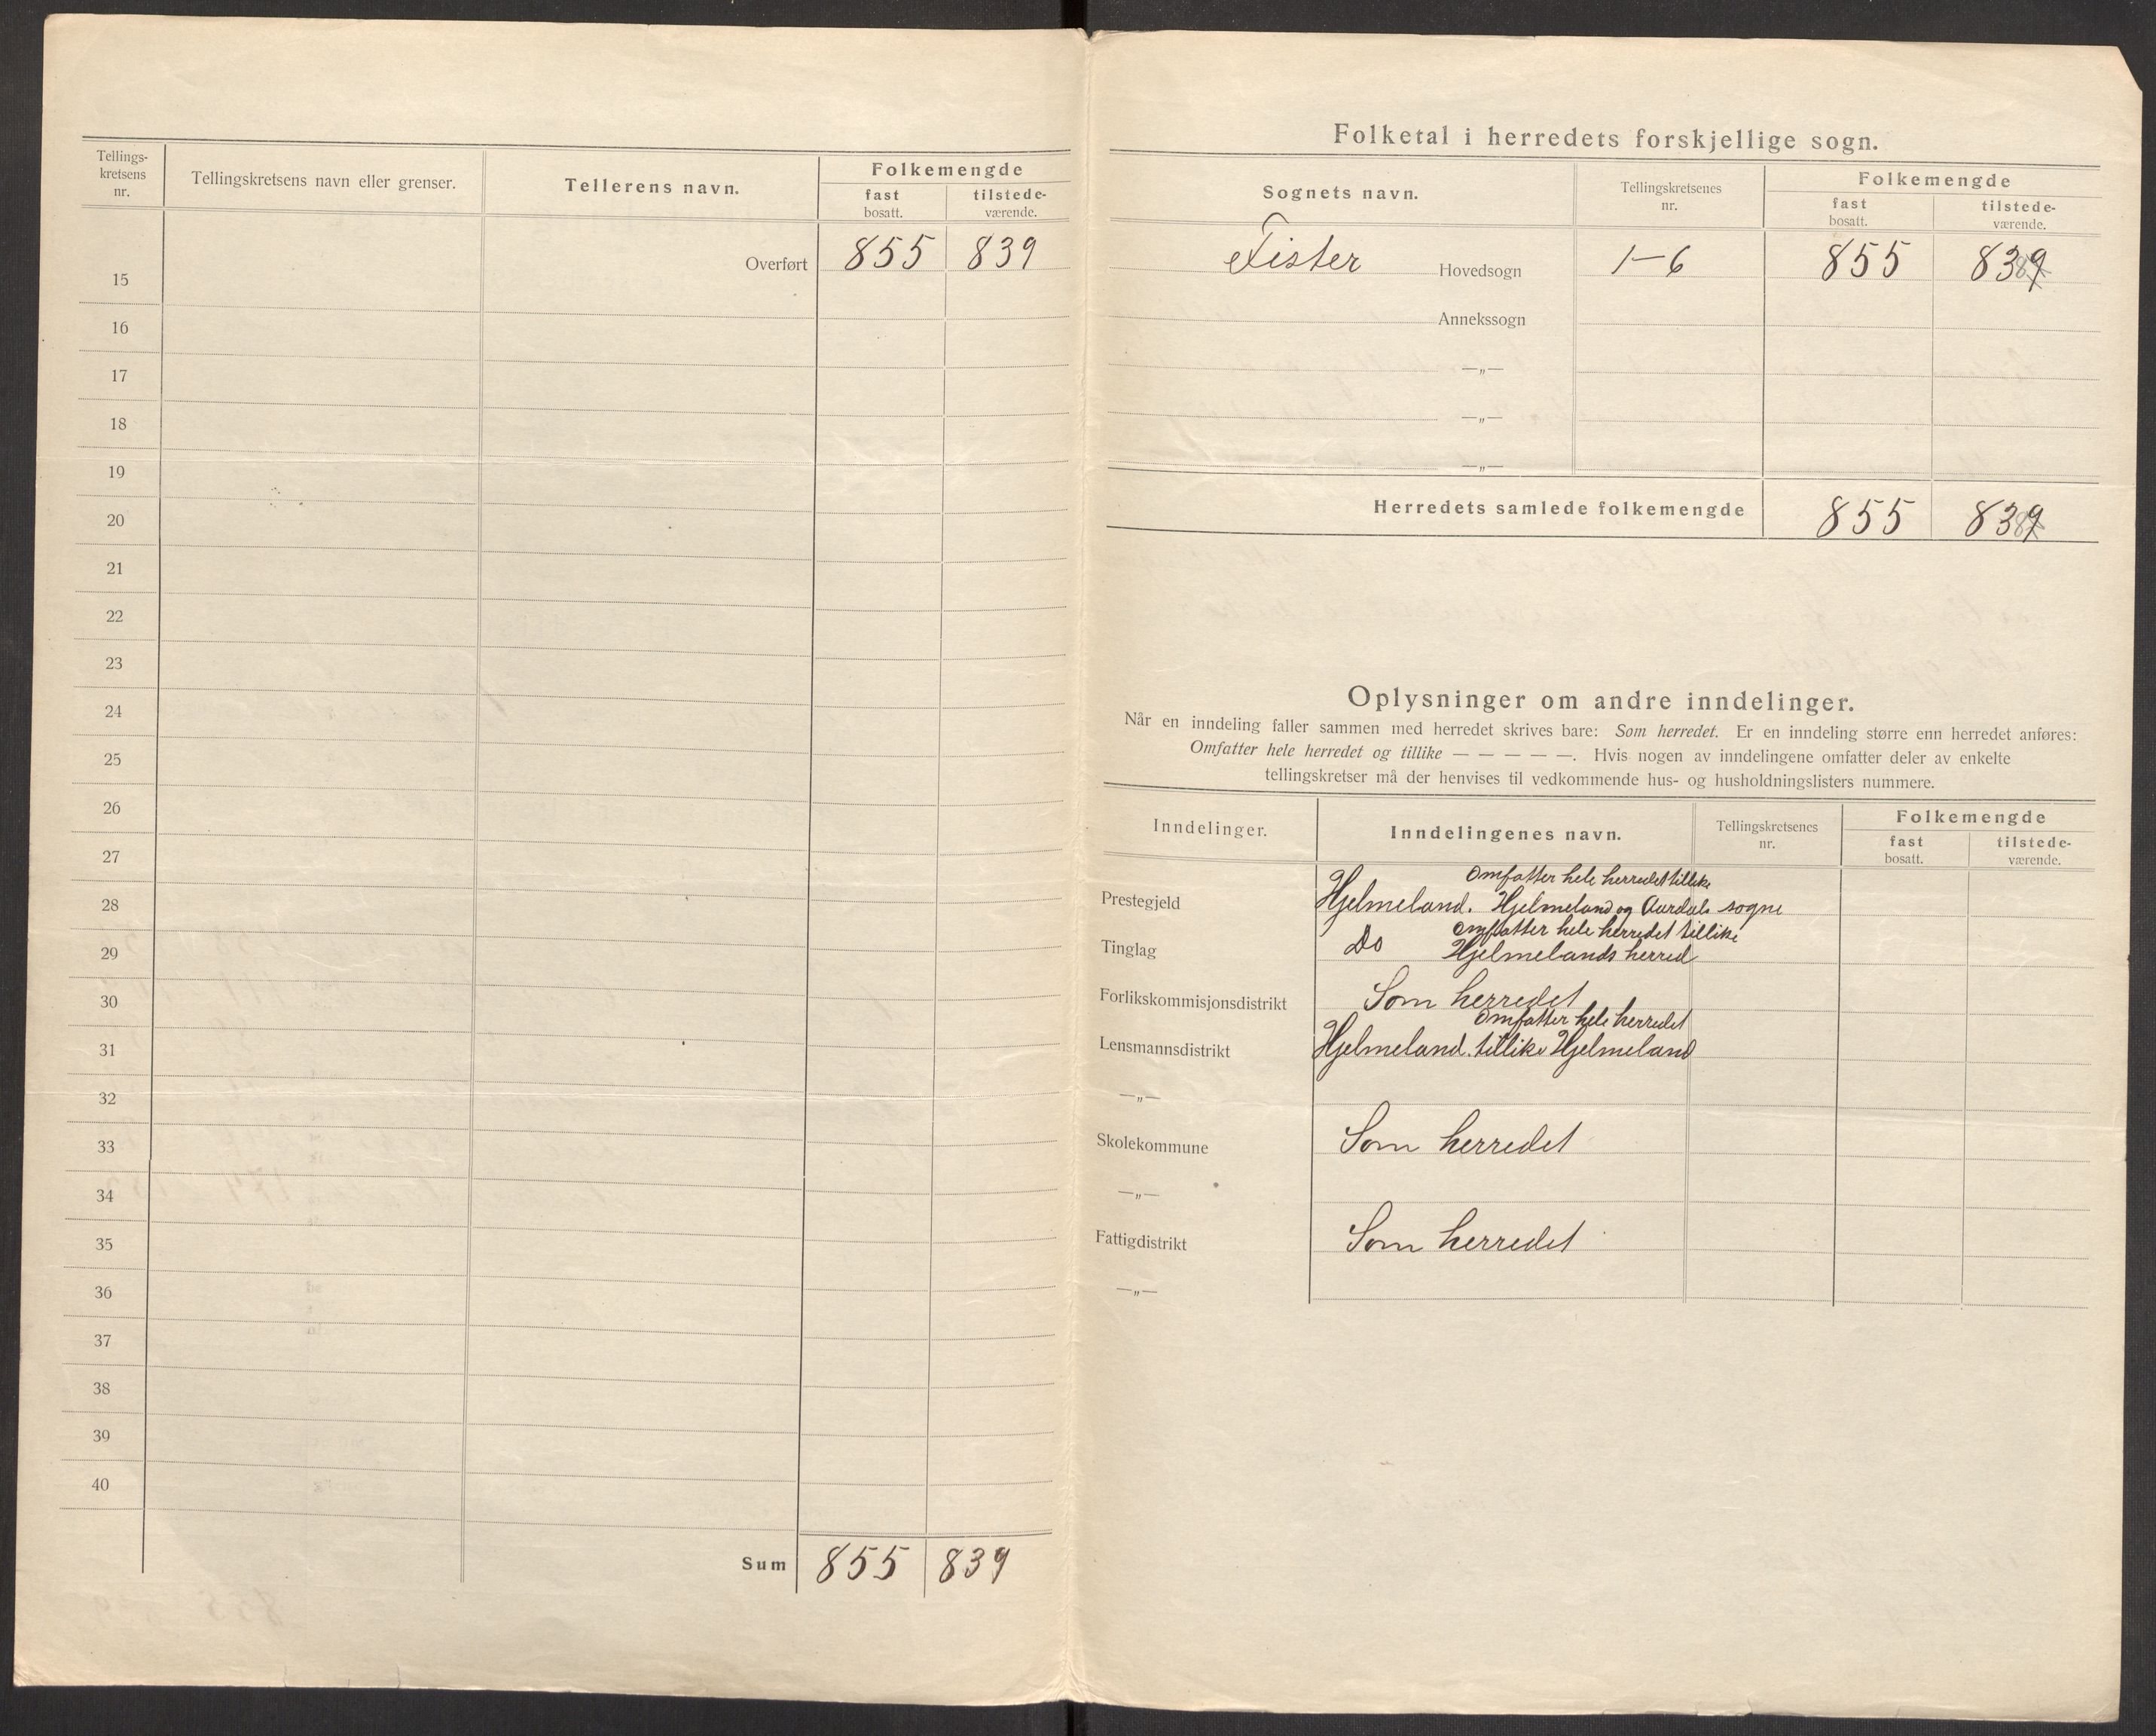 Tellings-
kretsens
nr.
Tellingskretsens navn eller grenser.
Tellerens navn.
Folkemengde
fast
bosatt.
tilstede-
værende.
Overført 855 839
15
16
17
18
19
20
21
22
23
24
25
26
27
28
29
30
31
32
33
34
35
36
37
38
39
40
Sum 855 839
Folketal i herredets forskjellige sogn.
Sognets navn.
Tellingskretsenes
nr.
Folkemengde
fast
bosatt.
tilstede-
værende.
Fister Hovedsogn 1-6 855 839
Annekssogn
—„—
—„—
—„—
Herredets samlede folkemengde 855 839
Oplysninger om andre inndelinger.
Når en inndeling faller sammen med herredet skrives bare: Som herredet. Er en inndeling større enn herredet anføres:
Omfatter hele herredet og tillike — — — — —. Hvis nogen av inndelingene omfatter deler av enkelte
tellingskretser må der henvises til vedkommende hus- og husholdningslisters nummere.
Inndelinger.
Inndelingenes navn.
Tellingskretsenes
nr.
Folkemengde
fast
bosatt.
tilstede-
værende.
Omfatter hele herredet tillike
Prestegjeld Hjelmeland. Hjelmeland og Aardals sogne
Omfatter hele herredet tillike
Tinglag Do Hjelmelands herred
Forlikskommisjonsdistrikt Som herredet
Omfatter hele herredet
Lensmannsdistrikt Hjelmeland. tillike Hjelmeland
—„—
Skolekommune Som herredet
—„—
Fattigdistrikt Som herredet
—„—